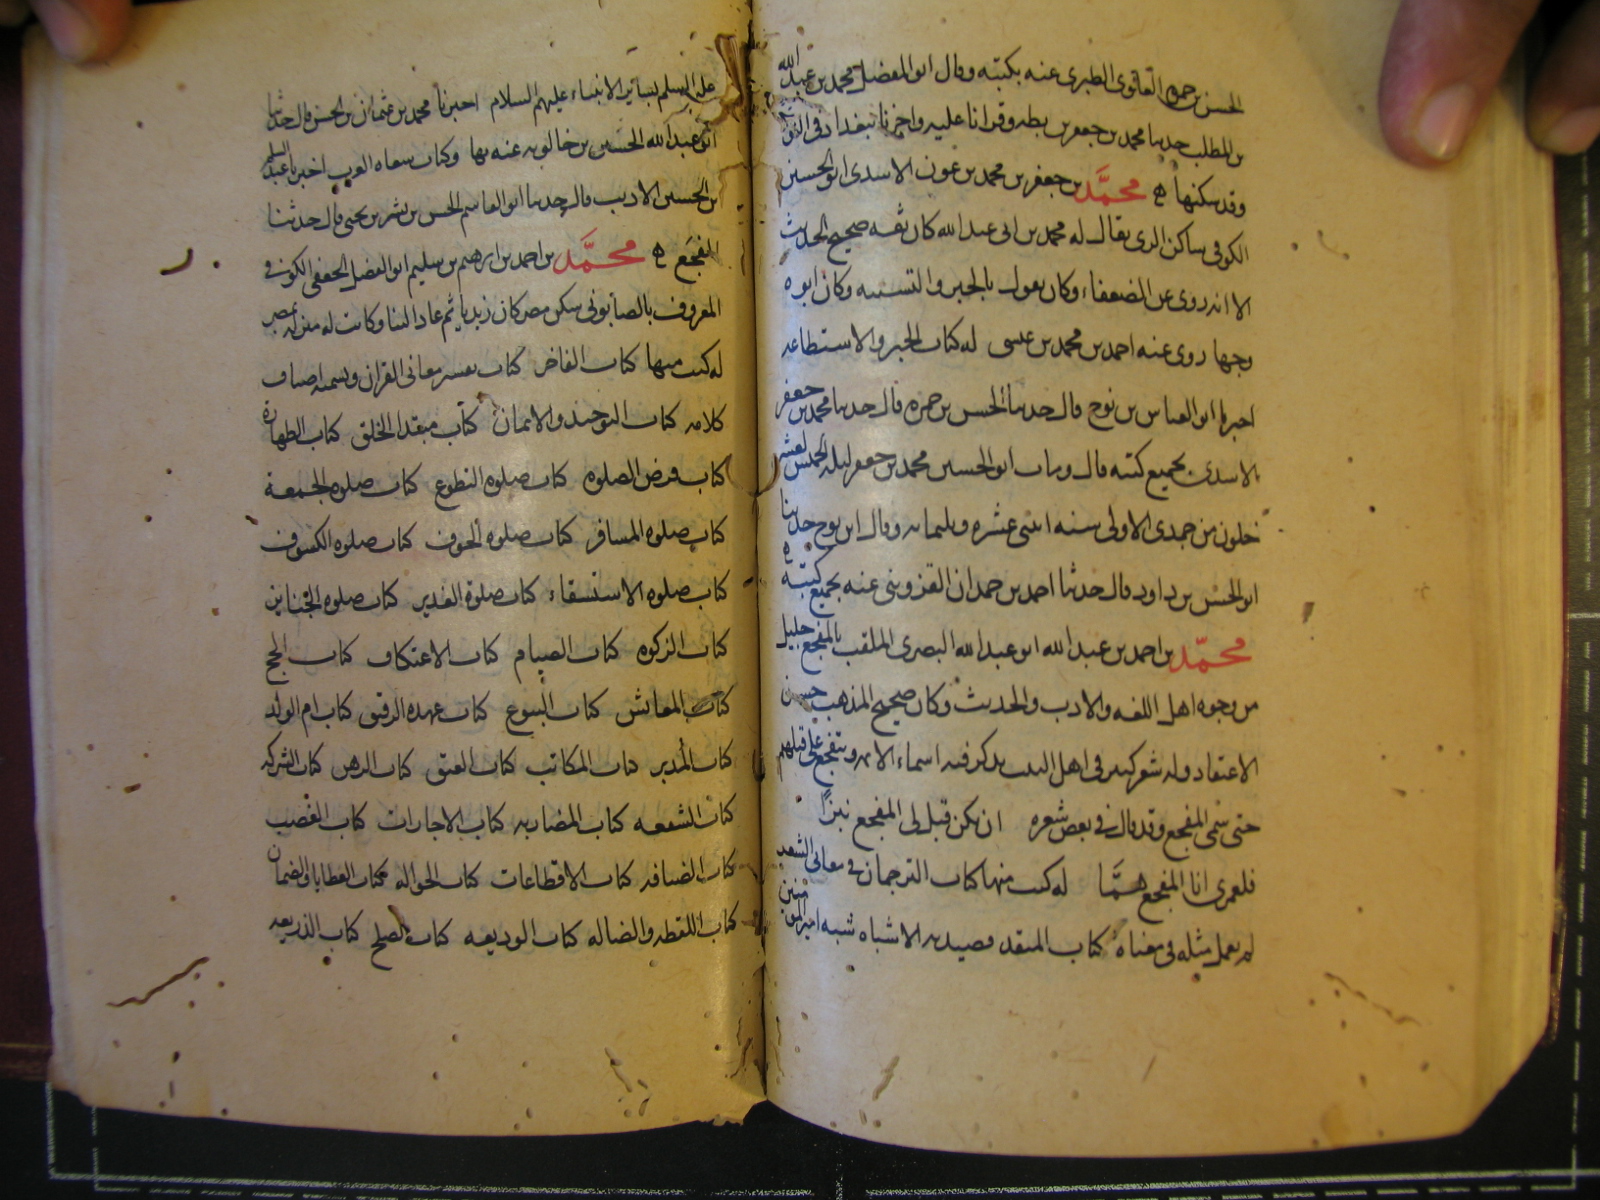 الحسن بن حمزه العلوى الطبرى عنه بكتبه وقال ابو المفضل محمد بن عبدالله
بن المطلب حدثنا محمد بن جعفر بن بطه وقرانا عليه واجزنا ببغداد فى النو
وقد سكنها ه محمَّد بن جعفر بن محمد بن عون الاسدى ابو الحسين
الكوفى ساكن الرى يقال له محمد بن ابى عبد الله كان ثقه صحيح الحديث
الا انه روى عن الضعفاء وكان يقول بالجبر والتشبيه وكان ابوه
وجها روى عنه احمد بن محمد بن عيسى له كتاب الجبر والاستطاعه
اخبرنا ابو العباس بن نوح قال حدثنا الحسن بن حمزه قال حدثنا محمد بن جعفر
الاسدى بجميع كتبه قال ومات ابو الحسين محمد بن جعفر ليله الخميس لعشر
خلون من جمدى الاولى سنه اثنتى عشره وثلثمايه وقال ابن نوح حدثنا
ابو الحسن بن داود قال حدثنا احمد بن حمدان القزوينى عنه بجميع كتبه ه
محمّد بن احمد بن عبد الله ابو عبد الله البصرى الملقب بالمفجع جليل
من وجوه اهل اللغه والادب والحديث وكان صحيح المذهب حسن
الاعتقاد وله شعر كثير فى اهل البيت يذكر فيه اسماء الايمه ويتفجع على قتلهم
حتى سمى المفجع وقد قال فى بعض شعره ان يكن قيل لى المفجع نبزًا
فلعمرى انا المفجع همَّا له كتب منها كتاب الترجمان فى معانى الشعر
لم يعمل مثله فى معناه كتاب المنقد قصيدته الاشباه شبه امير المومنين
عليه السلم بساير الانبياء عليهم السلام اخبرنا محمد بن عثمان بن الحسن قال حدثنا
ابو عبد الله الحسين بن خالويه عنه بها وكتاب سعاه العرب اخبرنا عبد السلم
بن الحسين الاديب قال حدثنا ابو القاسم الحسن بن بشر بن يحيى قال حدثنا
المفجَع ه محمَّد بن احمد بن ابرهيم بن سليم ابو الفضل الجعفى الكوفى
المعروف بالصابونى سكن مصر كان زيديا ثم عاد الينا وكانت له منزله بمصر
له كتب منها كتاب الفاخر كتاب تفسير معانى القران وتسميه اصناف
كلامه كتاب التوحيد والايمان كتاب مبتدا الخلق كتاب الطهارة
كتاب فرض الصلوه كتاب صلوه التطوع كتاب صلوه الجمعة
كتاب صلوه المسافر كتاب صلوه الخوف كتاب صلوه الكسوف
كتاب صلوه الاستسقاء كتاب صلوة الغدير كتاب صلوه الجنايز
كتاب الزكوه كتاب الصيام كتاب الاعتكاف كتاب الحج
كتاب المعايش كتاب البيوع كتاب عهده الرقيق كتاب ام الولد
كتاب المُدبر كتاب المكاتب كتاب العتق كتاب الرهن كتاب الشركه
كتاب الشفعه كتاب المضاربه كتاب الاجارات كتاب الغصب
كتاب الضيافه كتاب الاقطاعات كتاب الحواله كتاب العطايا والضمان
كتاب اللقطه والضاله كتاب الوديعه كتاب الصلح كتاب الذريعه